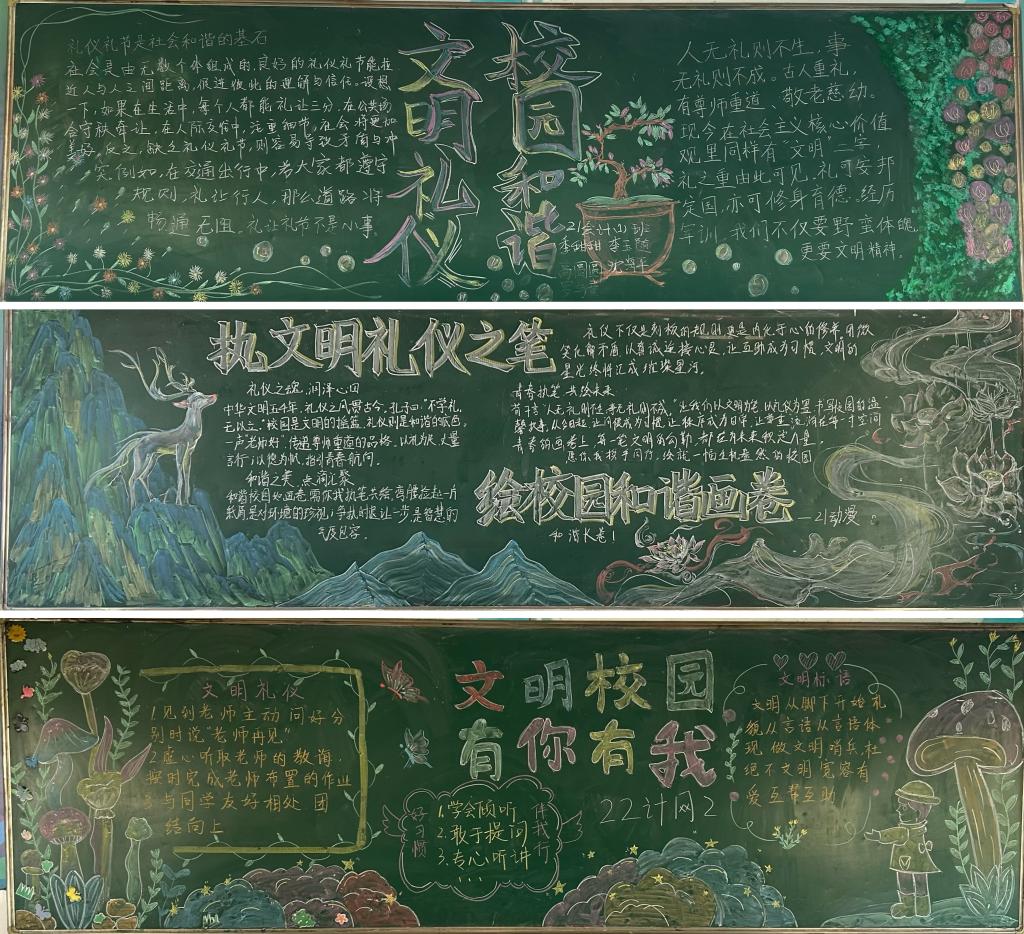 礼仪礼节是社会和谐的基石
社会是由无数个体组成的,良好的礼仪礼节能拉
近人与人之间距离,促进彼此的理解与信任。设想
一下,如果在生活中,每个人都能礼让三分,在公共场
会守秩序让,在人际交往中,注重细节,社会将更加
美好,反之,缺乏礼仪礼节,则容易导致矛盾与冲
突例如,在交通出行中,若大家都遵守
规则,礼让行人,那么道路将
畅通无阻,礼让礼节不是小事
文明礼仪
校园和谐
21会计山班
人无礼则不生,事
无礼则不成。古人重礼,
有尊师重道、敬老慈幼。
现今在社会主义核心价值
观里同样有“文明”二字,
礼之重由此可见,礼可安邦
定国,亦可修身育德。经历
军训,我们不仅要野蛮体魄,
更要文明精神。
执文明礼仪之笔
礼仪之魂,润泽心田
中华文明五千年,礼仪之风贯古今,孔子曰:“不学礼,
无以立。”校园是文明的摇篮,礼仪则是和谐的底色。
一声“老师好”传递尊师重道的品格,
言行;以德为帆,指引青春航向。
和谐之美,点滴汇聚
和谐校园如画卷,需你我执笔共绘,弯腰捡起一片
纸屑是对环境的珍视;争执时退让一步,是智慧的
礼仪不仅是刻板的规则,更是内化于心的修养,用微
笑化解矛盾,以真诚连接心灵,让互助成为习惯,文明的
星光终将汇成璀璨星河。
青春执笔,共绘未来:
愿你我携手同行,绘就一幅生机盎然的校园
和谐长卷!
绘校园和谐画卷
—21动漫
文明礼仪
1.见到老师主动问好分
别时说“老师再见”
2.虚心听取老师的教诲,
按时完成老师布置的作业
3.与同学友好相处 团
结向上
文明校园
有你有我
22计网2
好习惯
1.学会倾听
2.敢于提问
3.专心听讲
...
伴我行
文明标语
文明从脚下开始礼
貌从言语从言语体
现,做文明哨兵,杜
绝不文明宽容有
爱互帮互助